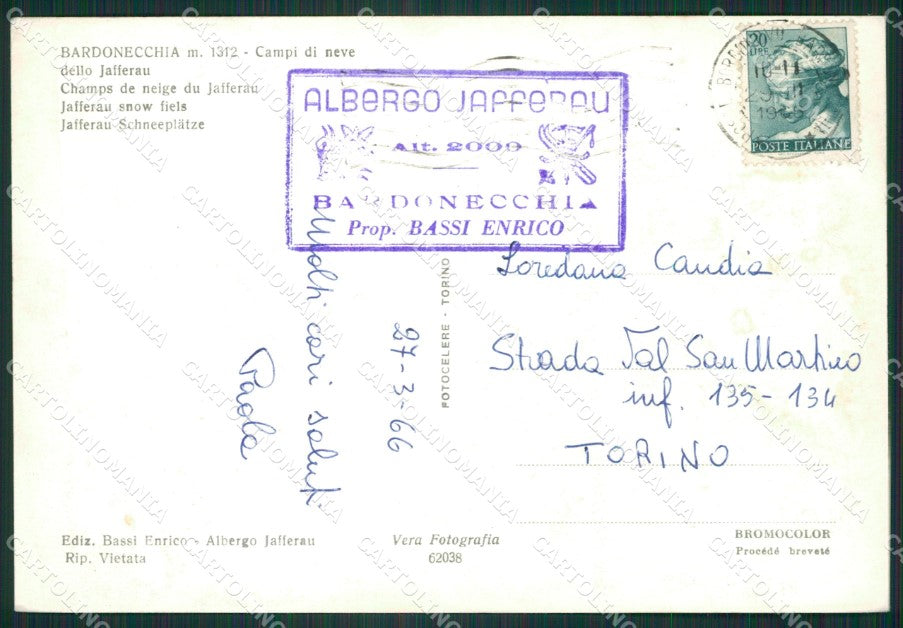 BARDONECCHIA m. 1312 - Campi di neve
dello Jafferau
Champs de neige du Jafferau
Jafferau snow fiels
Jafferau Schneeplätze
ALBERGO JAFFERAU
Alt. 2000
BARDONECCHIA
Prop. BASSI ENRICO
20
LIRE
POSTE ITALIANE
Molti cari saluti
Paola
27-3-66
FOTOCELERE - TORINO
Loredana Candia
Strada Val San Martino
inf. 135-134
TORINO
Ediz. Bassi Enrico - Albergo Jafferau
Rip. Vietata
Vera Fotografia
62038
BROMOCOLOR
Procédé breveté
CARTOLINOMANIA